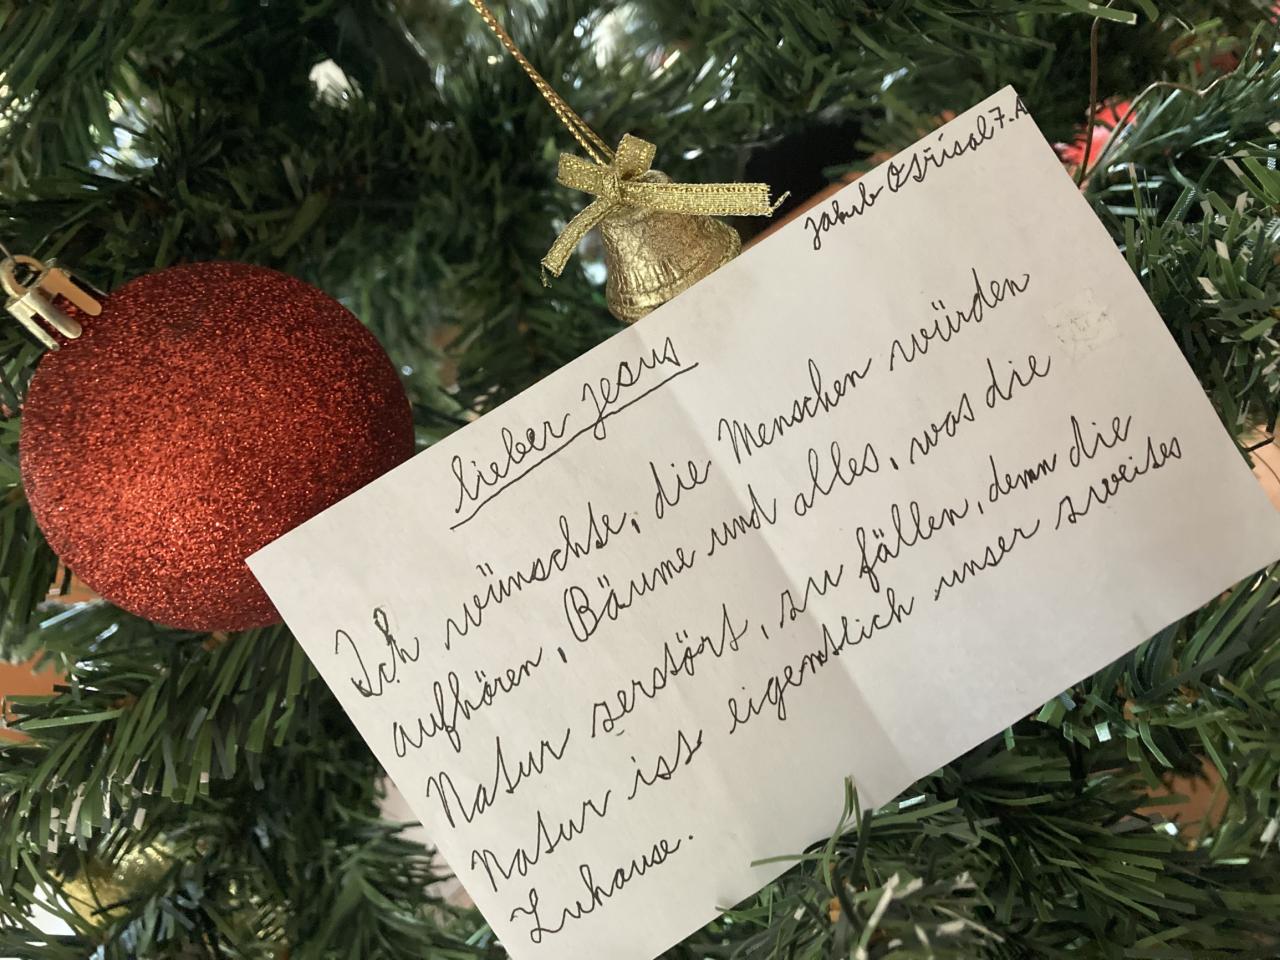 Jakub Ostřísal 7.A
Lieber Jesus
Ich wünschte, die Menschen würden
aufhören, Bäume und alles, was die
Natur zerstört, zu fällen, denn die
Natur ist eigentlich unser zweites
Zuhause.